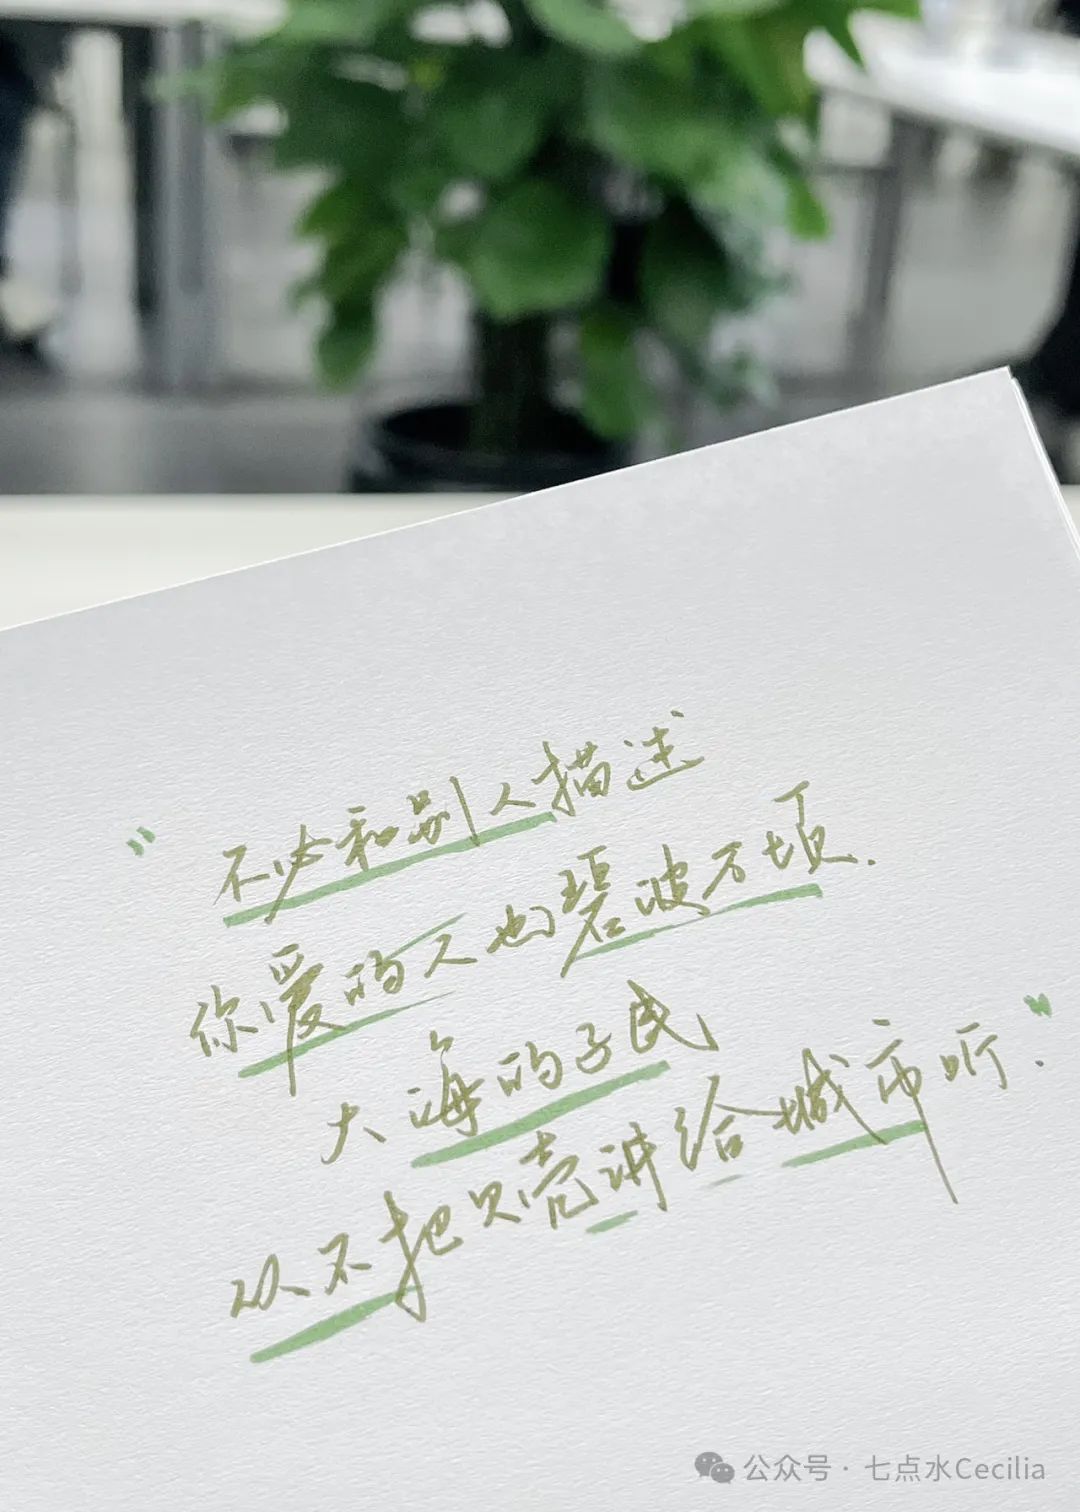 "不必和别人描述
你爱的人如碧波万顷.
大海的子民
从不把贝壳讲给城市听."
公众号·七点水Cecilia